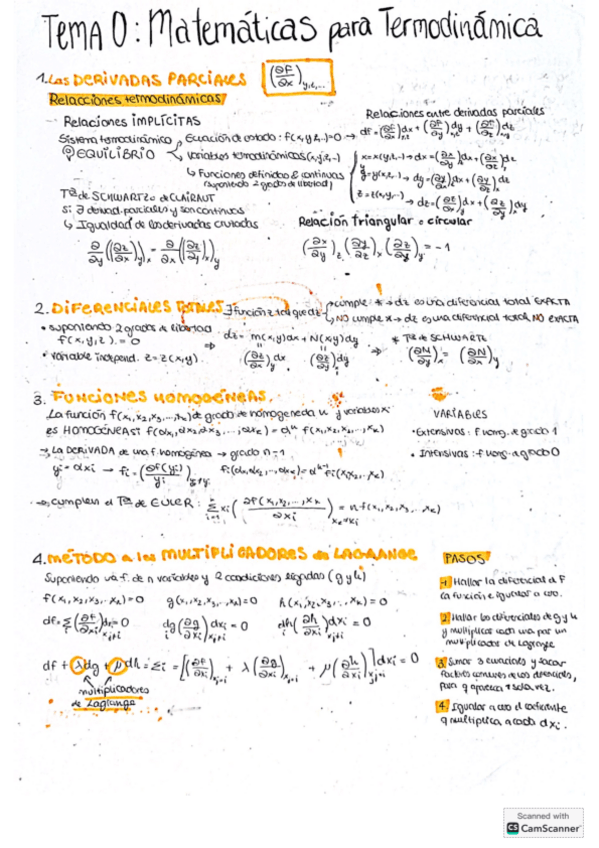 TEMA 0: Matemáticas para Termodinámica
1. Las DERIVADAS PARCIALES (∂F/∂x)y,z,...
Relaciones termodinámicas
Relaciones IMPLÍCITAS
Sistema termodinámico, Ecuación de estado: f(x,y,z,..)=0 →
@ EQUILIBRIO ↳ variables termodinámicas (x,y,z,..)
↳ Funciones definidas & continuas
(suponiendo 2 grados de libertad)
Relaciones entre derivadas parciales
df = (∂F/∂x)y,z dx + (∂F/∂y)x,z dy + (∂F/∂z)x,y dz
x = x(y,z,..) → dx = (∂x/∂y)z dy + (∂x/∂z)y dz
y = y(x,z,..) → dy = (∂y/∂x)z dx + (∂y/∂z)x dz
z = z(x,y,..) → dz = (∂z/∂x)y dx + (∂z/∂y)x dy
Tª de SCHWARTZ o de CLAIRAUT
Si ∂ derivad. parciales y son continuas
↳ Igualdad de las derivadas cruzadas
∂/∂y ((∂z/∂x)y)x = ∂/∂x ((∂z/∂y)x)y
Relación triangular o circular
(∂x/∂y)z (∂y/∂z)x (∂z/∂x)y = -1
2. DIFERENCIALES TOTALES ∃ función z tal que dz
cumple * → dz es una diferencial total EXACTA
NO cumple * → dz es una diferencial total NO EXACTA
• suponiendo 2 grados de libertad
f(x,y,z) = 0
• variable independ. z = z(x,y)
⇒ dz = M(x,y)dx + N(x,y)dy ⇒
(∂z/∂x)y dx (∂z/∂y)x dy
* Tª de SCHWARTZ
3. FUNCIONES HOMOGÉNEAS.
La función f(x₁,x₂,x₃,..,xₖ) de grado de homogeneidad n y variables xᵢ
es HOMOGÉNEA si f(αx₁,αx₂,αx₃,...,αxₖ) = αⁿ f(x₁,x₂,...,xₖ)
→ La DERIVADA de una f. homogénea → grado n-1
→ cumplen el Tª de EULER:
VARIABLES
• Extensivas: f homg. de grado 1
• Intensivas: f homg. a grado 0
4. MÉTODO de los MULTIPLICADORES de LAGRANGE
Suponiendo una f. de n variables y 2 condiciones ligadas (g y h)
f(x₁,x₂,x₃,..xₖ)=0 g(x₁,x₂,x₃,..,xₖ)=0 h(x₁,x₂,x₃,..,xₖ)=0
df + λdg + μdh = Σi = [(∂f/∂xi)xj≠i + λ(∂g/∂xi)xj≠i + μ(∂h/∂xi)xj≠i] dxi = 0
multiplicadores
de Lagrange
PASOS
1 Hallar la diferencial de F
la función e igualar a cero.
2 Hallar las diferenciales de g y h
y multiplicar cada una por un
multiplicador de Lagrange
3 Sumar 3 ecuaciones y sacar
factores comunes de las diferenciales,
para q aparezca 1 sola vez.
4. Igualar a cero el coeficiente
q multiplica a cada dxi.
Scanned with
CS CamScanner